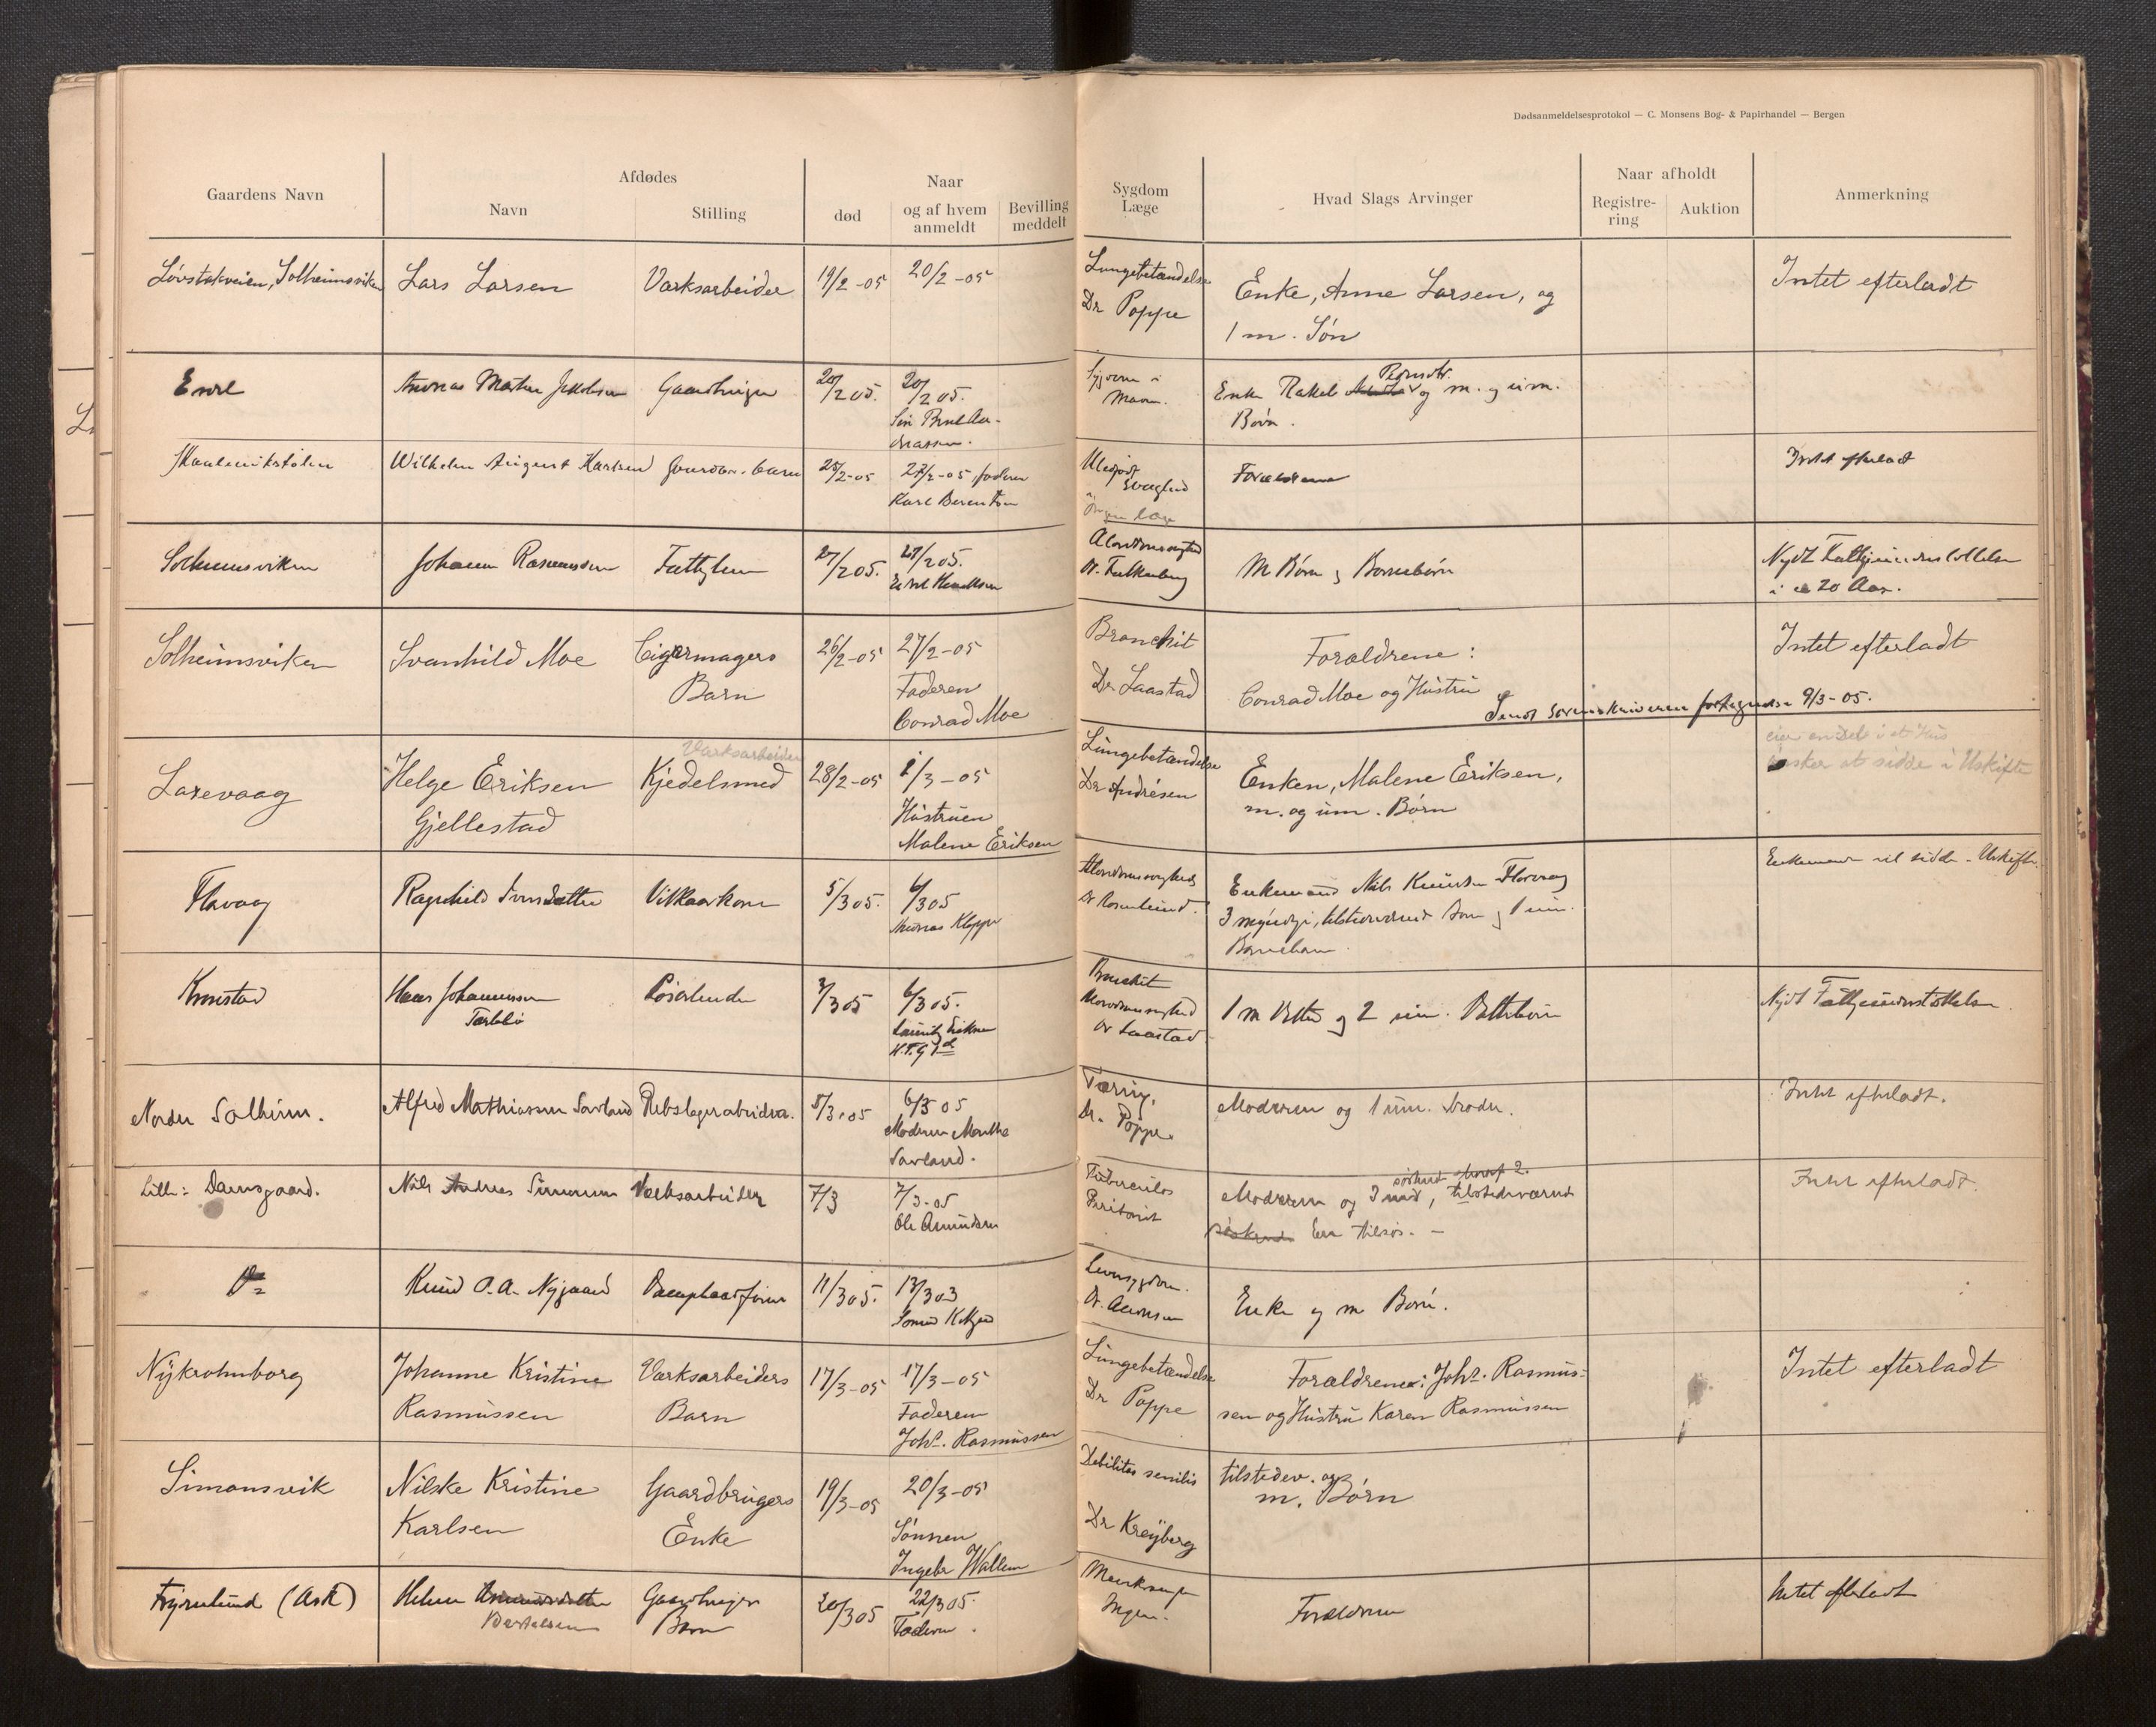 Dødsanmeldelsesprotokol — C. Monsens Bog- & Papirhandel — Bergen
Gaardens Navn
Afdødes
Navn
Stilling
død
Naar
og af hvem
anmeldt
Bevilling
meddelt
Sygdom
Læge
Hvad Slags Arvinger
Naar afholdt
Registre-
ring
Auktion
Anmerkning
Løvstakveien, Solheimsviken Lars Larsen Værksarbeider 19/2 -05 20/2 -05 Lungebetændelse Enke, Anne Larsen, og Intet efterladt
Dr Poppe 1 m. Søn
Gaardbruger 20/2 05. 20/2 05. Sygdom i Enke Rakel Pedersdtr. og m. og um.
Maven. Børn.
Wilhelm August Karlsen 25/2-05 27/2-05 faderen Forældrene Intet efterladt
Karl Berentsen
Ingen læge
Solheimsviken Johanne Rasmussen Fattiglem 27/2 05. 27/2 05. Alderdomssvaghed M Børn og Børnebørn Nydt Fattigunderstøttelse
Dr. Falkenberg i ca 20 Aar.
Solheimsviken Svanhild Moe Cigarmagers 26/2-05 27/2-05 Bronchit Forældrene: Intet efterladt
Barn Faderen Dr Laastad Conrad Moe og Hustru
Conrad Moe
Sendt Sorenskriveren fortegnelse 9/3-05.
Laxevaag Helge Eriksen Værksarbeider Kjedelsmed 28/2-05 1/3-05 Lungebetændelse Enken, Malene Eriksen, eier en Del i et Hus
Gjellestad Hustruen Dr Andrésen m. og um. Børn ønsker at sidde i Uskifte
Malene Eriksen
Flavaag Ragnhild 5/3 05. 6/3 05 Alderdomssvaghed Enkemand Nils Knudsen Flavaag Enkemand vil sidde i Uskifte
Thomas Kleppe Dr Rosenlund. 3 myndige, tilstedeværende Børn og 1 um.
Barnebarn.
Kronstad Hans Johannessen 3/3 05 6/3 05. Bronchit 1 m Datter og 2 um. Datterbørn Nydt Fattigunderstøttelse
Alderdomssvaghed
Dr Laastad
Nordre Solheim. Alfred Mathiassen Savland Rebslagerarbeider. 5/3.05 6/3 05 Tæring. Moderen og 1 um. broder. Intet efterladt.
Moderen Marthe Dr. Poppe.
Savland.
Lille Damsgaard. Nils Andreas Simonsen Værksarbeider 7/3 7/3-05 Tuberculøs Moderen og 3 myd, søskend hvoraf 2. tilstedeværende Intet efterladt.
Ole Amundsen Peritonit søskende Een tilsøs. —
Do Knud O. A. Nygaard 11/3 05. 13/3 03 Enke og m Børn.
Nykronborg Johanne Kristine Værksarbeiders 17/3-05 17/3-05 Lungebetændelse Forældrene: Johs. Rasmus- Intet efterladt
Rasmussen Barn Faderen Dr Poppe sen og Hustru Karen Rasmussen
Johs. Rasmussen
Simonsvik Nilske Kristine Gaardbrugers 19/3-05 20/3-05 Debilitas senilis tilstedev. og
Karlsen Enke Sønnen Dr Kreyberg m. Børn
Ingebr Wallem
(Ask) Helene Bertelsen Gaardbruger 20/3 05 22/3 05. Ingen. Forældrene Intet efterladt
Barn Faderen.